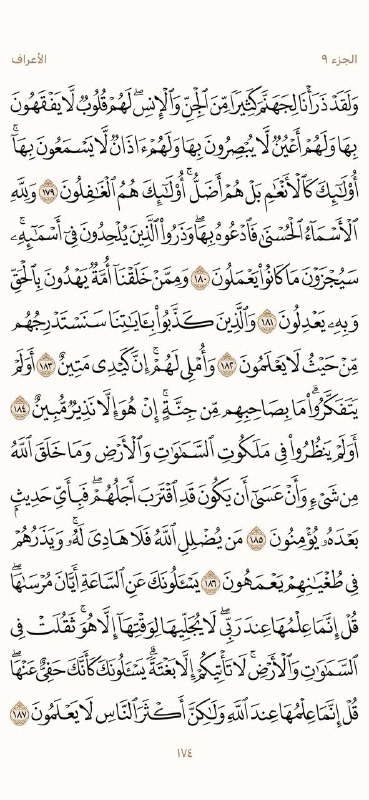 الجزء ٩
الأعراف
وَلَقَدْ ذَرَأْنَا لِجَهَنَّمَ كَثِيرًا مِّنَ ٱلْجِنِّ وَٱلْإِنسِۖ لَهُمْ قُلُوبٌ لَّا يَفْقَهُونَ
بِهَا وَلَهُمْ أَعْيُنٌ لَّا يُبْصِرُونَ بِهَا وَلَهُمْ ءَاذَانٌ لَّا يَسْمَعُونَ بِهَآۚ
أُو۟لَٰٓئِكَ كَٱلْأَنْعَٰمِ بَلْ هُمْ أَضَلُّۚ أُو۟لَٰٓئِكَ هُمُ ٱلْغَٰفِلُونَ ١٧٩ وَلِلَّهِ
ٱلْأَسْمَآءُ ٱلْحُسْنَىٰ فَٱدْعُوهُ بِهَاۖ وَذَرُوا۟ ٱلَّذِينَ يُلْحِدُونَ فِىٓ أَسْمَٰٓئِهِۦۚ
سَيُجْزَوْنَ مَا كَانُوا۟ يَعْمَلُونَ ١٨٠ وَمِمَّنْ خَلَقْنَآ أُمَّةٌ يَهْدُونَ بِٱلْحَقِّ
وَبِهِۦ يَعْدِلُونَ ١٨١ وَٱلَّذِينَ كَذَّبُوا۟ بِـَٔايَٰتِنَا سَنَسْتَدْرِجُهُم
مِّنْ حَيْثُ لَا يَعْلَمُونَ ١٨٢ وَأُمْلِى لَهُمْۚ إِنَّ كَيْدِى مَتِينٌ ١٨٣ أَوَلَمْ
يَتَفَكَّرُوا۟ۗ مَا بِصَاحِبِهِم مِّن جِنَّةٍۚ إِنْ هُوَ إِلَّا نَذِيرٌ مُّبِينٌ ١٨٤
أَوَلَمْ يَنظُرُوا۟ فِى مَلَكُوتِ ٱلسَّمَٰوَٰتِ وَٱلْأَرْضِ وَمَا خَلَقَ ٱللَّهُ
مِن شَىْءٍ وَأَنْ عَسَىٰٓ أَن يَكُونَ قَدِ ٱقْتَرَبَ أَجَلُهُمْۖ فَبِأَىِّ حَدِيثٍۭ
بَعْدَهُۥ يُؤْمِنُونَ ١٨٥ مَن يُضْلِلِ ٱللَّهُ فَلَا هَادِىَ لَهُۥۚ وَيَذَرُهُمْ
فِى طُغْيَٰنِهِمْ يَعْمَهُونَ ١٨٦ يَسْـَٔلُونَكَ عَنِ ٱلسَّاعَةِ أَيَّانَ مُرْسَىٰهَاۖ
قُلْ إِنَّمَا عِلْمُهَا عِندَ رَبِّىۖ لَا يُجَلِّيهَا لِوَقْتِهَآ إِلَّا هُوَۚ ثَقُلَتْ فِى
ٱلسَّمَٰوَٰتِ وَٱلْأَرْضِۚ لَا تَأْتِيكُمْ إِلَّا بَغْتَةًۗ يَسْـَٔلُونَكَ كَأَنَّكَ حَفِىٌّ عَنْهَاۖ
قُلْ إِنَّمَا عِلْمُهَا عِندَ ٱللَّهِ وَلَٰكِنَّ أَكْثَرَ ٱلنَّاسِ لَا يَعْلَمُونَ ١٨٧
١٧٤